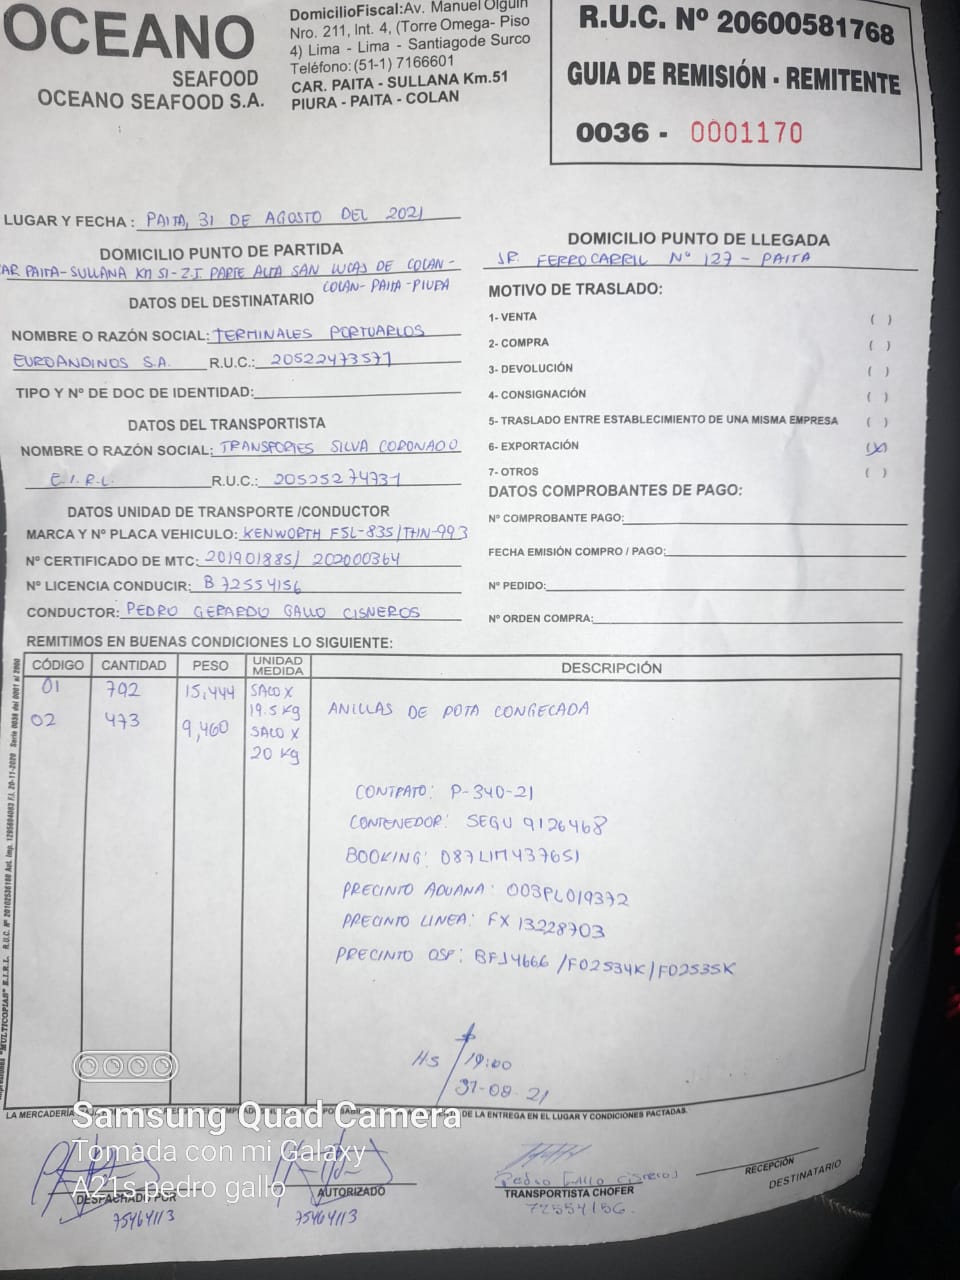 OCEANO
SEAFOOD
OCEANO SEAFOOD S.A.
DomicilioFiscal:Av. Manuel Olguin
Nro. 211, Int. 4, (Torre Omega- Piso
4) Lima - Lima - Santiagode Surco
Teléfono:(51-1) 7166601
CAR. PAITA - SULLANA Km.51
PIURA - PAITA - COLAN
R.U.C. Nº 20600581768
GUIA DE REMISIÓN - REMITENTE
0036 - 0001170
LUGAR Y FECHA : PAITA, 31 DE AGOSTO DEL 2021
DOMICILIO PUNTO DE PARTIDA
CAR PAITA-SULLANA KM 51-Z.I PARTE ALTA SAN LUCAS DE COLAN-
COLAN-PAITA-PIURA
DOMICILIO PUNTO DE LLEGADA
JR. FERROCARRIL Nº 127 - PAITA
DATOS DEL DESTINATARIO
NOMBRE O RAZÓN SOCIAL: TERMINALES PORTUARIOS
EUROANDINOS S.A. R.U.C.: 20522473571
TIPO Y Nº DE DOC DE IDENTIDAD:
DATOS DEL TRANSPORTISTA
NOMBRE O RAZÓN SOCIAL: TRANSPORTES SILVA CORONADO
E.I.R.L. R.U.C.: 20525274731
DATOS UNIDAD DE TRANSPORTE /CONDUCTOR
MARCA Y Nº PLACA VEHICULO: KENWORTH FSL-835/THN-993
Nº CERTIFICADO DE MTC: 201901885/ 202000364
Nº LICENCIA CONDUCIR: B 72554156
CONDUCTOR: PEDRO GERARDO GALLO CISNEROS
MOTIVO DE TRASLADO:
1- VENTA ( )
2- COMPRA ( )
3- DEVOLUCIÓN ( )
4- CONSIGNACIÓN ( )
5- TRASLADO ENTRE ESTABLECIMIENTO DE UNA MISMA EMPRESA ( )
6- EXPORTACIÓN (X)
7- OTROS ( )
DATOS COMPROBANTES DE PAGO:
Nº COMPROBANTE PAGO:
FECHA EMISIÓN COMPRO / PAGO:
Nº PEDIDO:
Nº ORDEN COMPRA:
REMITIMOS EN BUENAS CONDICIONES LO SIGUIENTE:
CÓDIGO CANTIDAD PESO UNIDAD MEDIDA DESCRIPCIÓN
01 792 15,444 SACO X
19.5 Kg ANILLAS DE POTA CONGELADA
02 473 9,460 SACO X
20 Kg
CONTRATO: P-340-21
CONTENEDOR: SEGU 9126468
BOOKING: 087LIM437651
PRECINTO ADUANA: 003PL019372
PRECINTO LINEA: FX 13228703
PRECINTO OSP: BF14666 /F02534K/F02535K
Hs / 19:00
31-08-21
LA MERCADERÍA DE LA ENTREGA EN EL LUGAR Y CONDICIONES PACTADAS.
Samsung Quad Camera
Tomada con mi Galaxy
A21s pedro gallo
DESPACHADO POR
75464113
AUTORIZADO
75464113
Pedro Gallo Cisneros
TRANSPORTISTA CHOFER
72554156.
RECEPCIÓN
DESTINATARIO